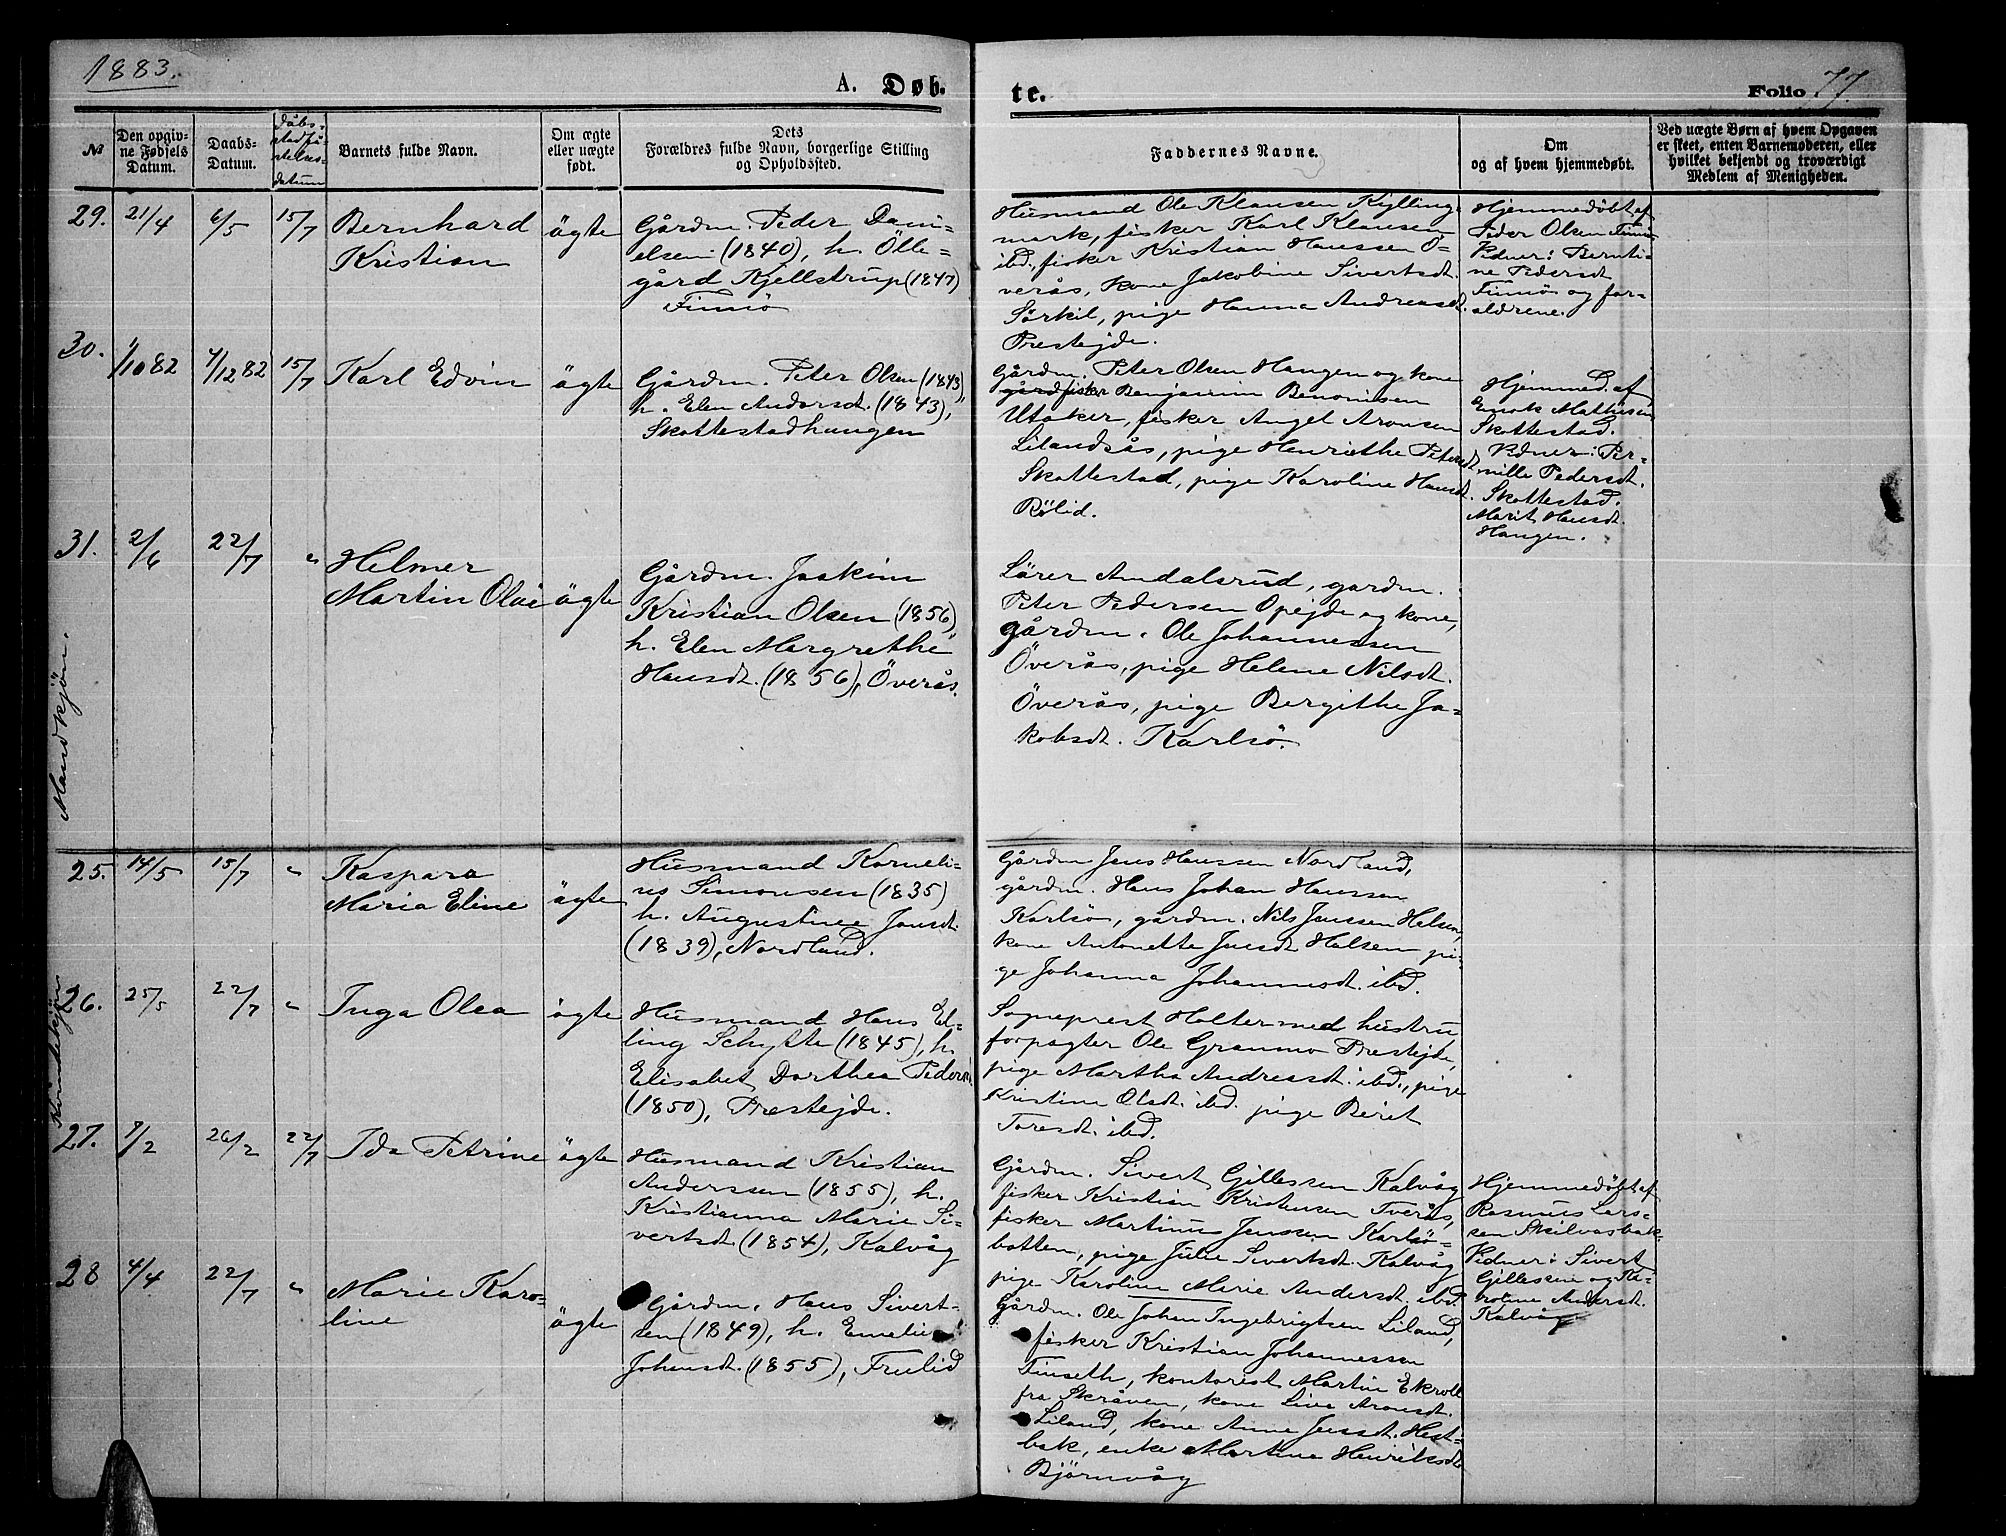 1883.
A. Døb-
te.
Folio 77.
№
Den opgiv-
ne Fødsels
Datum.
Daabs-
Datum.
Dåbs-
stadfä-
stelses-
datum
Barnets fulde Navn.
Om ægte
eller uægte
født.
Dets
Forældres fulde Navn, borgerlige Stilling
og Opholdssted.
Faddernes Navne.
Om
og af hvem hjemmedøbt.
Ved uægte Børn af hvem Opgaven
er skeet, enten Barnemoderen, eller
hvilket bekjendt og troværdigt
Medlem af Menigheden.
Mandkjøn.
29. 21/4 6/5 15/7
Bernhard
Kristian
ägte
Gårdm. Peder Dani-
elsen (1840), h. Ölle-
gård Kjellstrup (1847)
Finnö
Husmand Ole Klausen Kylling-
mark, fisker Karl Klausen
ibd., fisker Kristian Hanssen Ö-
verås, kone Jakobine Sivertsdt.
Sörkil, pige Hanna Andreasdt.
Prestejde.
Hjemmedöbt af
Peder Olsen Finnö
Vidner: Bernti-
ne Pedersdt
Finnö og for-
äldrene.
30. 1/10 82 7/12 82 15/7
Karl Edvin
ägte
Gårdm. Peter Olsen (1843),
h. Elen Andersdt. (1843),
Skottestadhaugen
Gårdm. Peter Olsen Haugen og kone
gård fisker Benjamin Benonisen
Utaker, fisker Angel Aronsen
Lilandsås, pige Henriethe Petersdt.
Skottestad, pige Karoline Hansdt.
Rölid.
Hjemmed. af
Enok Mathisen
Skottestad.
Vidner: Per-
nille Pedersdt.
Skottestad.
Marit Hansdt.
Haugen.
31. 2/6 22/7 "
Helmer
Martin Olai
ägte
Gårdm. Joakim
Kristian Olsen (1856),
h. Elen Margrethe
Hansdt. (1856), Överås.
Lärer Andalsrud, gardm.
Peter Pedersen Opejde og kone,
gårdm. Ole Johannessen
Överås, pige Helene Nilsdt.
Överås, pige Bergithe Ja-
kobsdt. Karlsö.
Kvindekjön
25. 14/5 15/7 "
Kaspara
Maria Eline
ägte
Husmand Korneli-
us Simonsen (1835)
h. Augustine Jonsdt.
(1839), Nordland.
Gårdm Jens Hanssen Nordland,
gårdm. Hans Johan Hanssen
Karlsö, gårdm. Nils Jenssen Helsen,
kone Antonette Jensdt Halsen, pi-
ge Johanna Johannesdt. ibd.
26. 25/5 22/7 "
Inga Olea
ägte
Husmand Hans El-
ling Schytte (1845), h.
Elisabet Dorthea Pedersd.
(1850), Prestejde.
Sogneprest Holter med hustru
forpagter Ole Granmo Prestejde,
pige Martha Andreasdt. ibd., pige
Kristine Olsdt. ibd. pige Beret
Toresdt. ibd.
27. 7/2 26/2 22/7
Ida Petrine
ägte
Husmand Kristian
Anderssen (1855), h.
Kristianna Marie Si-
vertsdt (1854), Kalvåg
Gårdm. Sivert Gillessen Kalvåg
fisker Kristian Kristensen Tverås,
fisker Martinus Jenssen Karlsö-
botten, pige Julie Sivertsdt. Kalvåg
pige Karoline Marie Andersdt. ibd.
Hjemmedöbt af
Rasmus Lars-
sen Skilvasbak.
Vidner: Sivert
Gillessen og Ka-
roline Andersdt.
Kalvåg
28 4/4 22/7 "
Marie Karo-
line
ägte
Gårdm. Hans Sivert-
sen (1849), h. Emelie
Johansdt. (1855), Frulid
Gårdm. Ole Johan Ingebrigtsen Liland,
fisker Kristian Johannessen
Finseth, kontorist Martin Ekroll
fra Skråven, kone Liva Aronsdt.
Liland, kone Anne Jensdt. Hest-
bak, enke Martina Henriksdt
Björnvåg